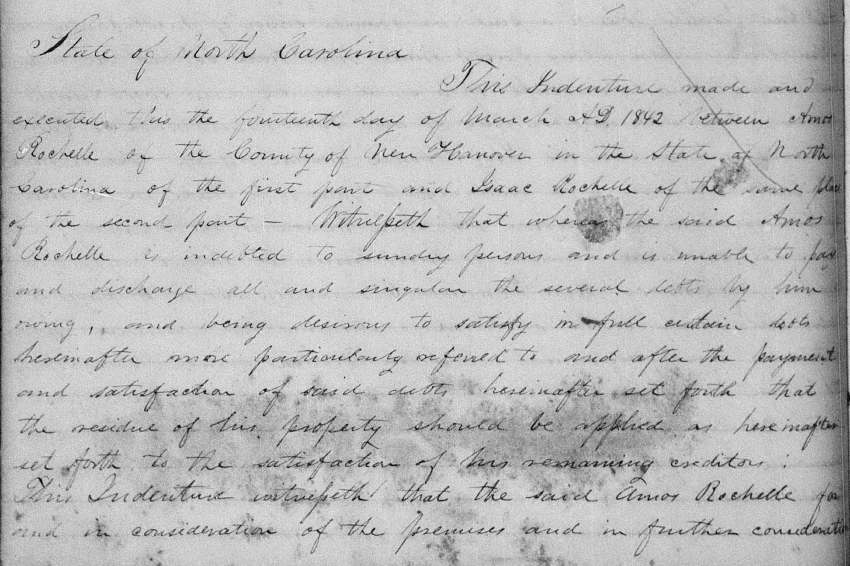 State of North Carolina
This Indenture made and
executed this the fourteenth day of March AD. 1842 between Amos
Rochelle of the County of New Hanover in the State of North
Carolina of the first part and Isaac Rochelle of the same place
of the second part – Witnesseth that whereas the said Amos
Rochelle is indebted to sundry persons and is unable to pay
and discharge all and singular the several debts by him
owing, and being desirous to satisfy in full certain debts
hereinafter more particularly referred to and after the payment
and satisfaction of said debts hereinafter set forth that
the residue of his property should be applied as hereinafter
set forth to the satisfaction of his remaining creditors:
This Indenture witnesseth that the said Amos Rochelle for
and in consideration of the premises and in further consideration